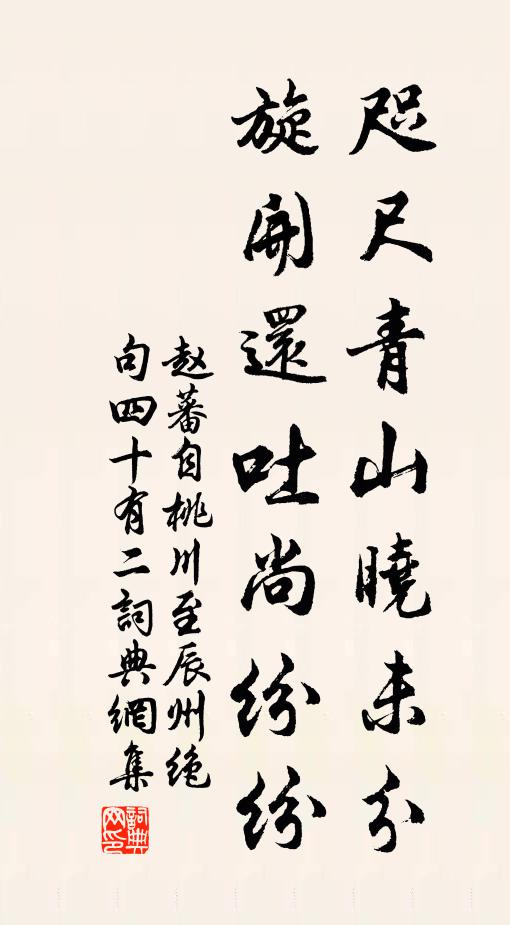 咫尺青山曉未分
旋開還吐尚紛紛
赵蕃自桃川至辰州绝
句四十有二詞典網集
詞典网印